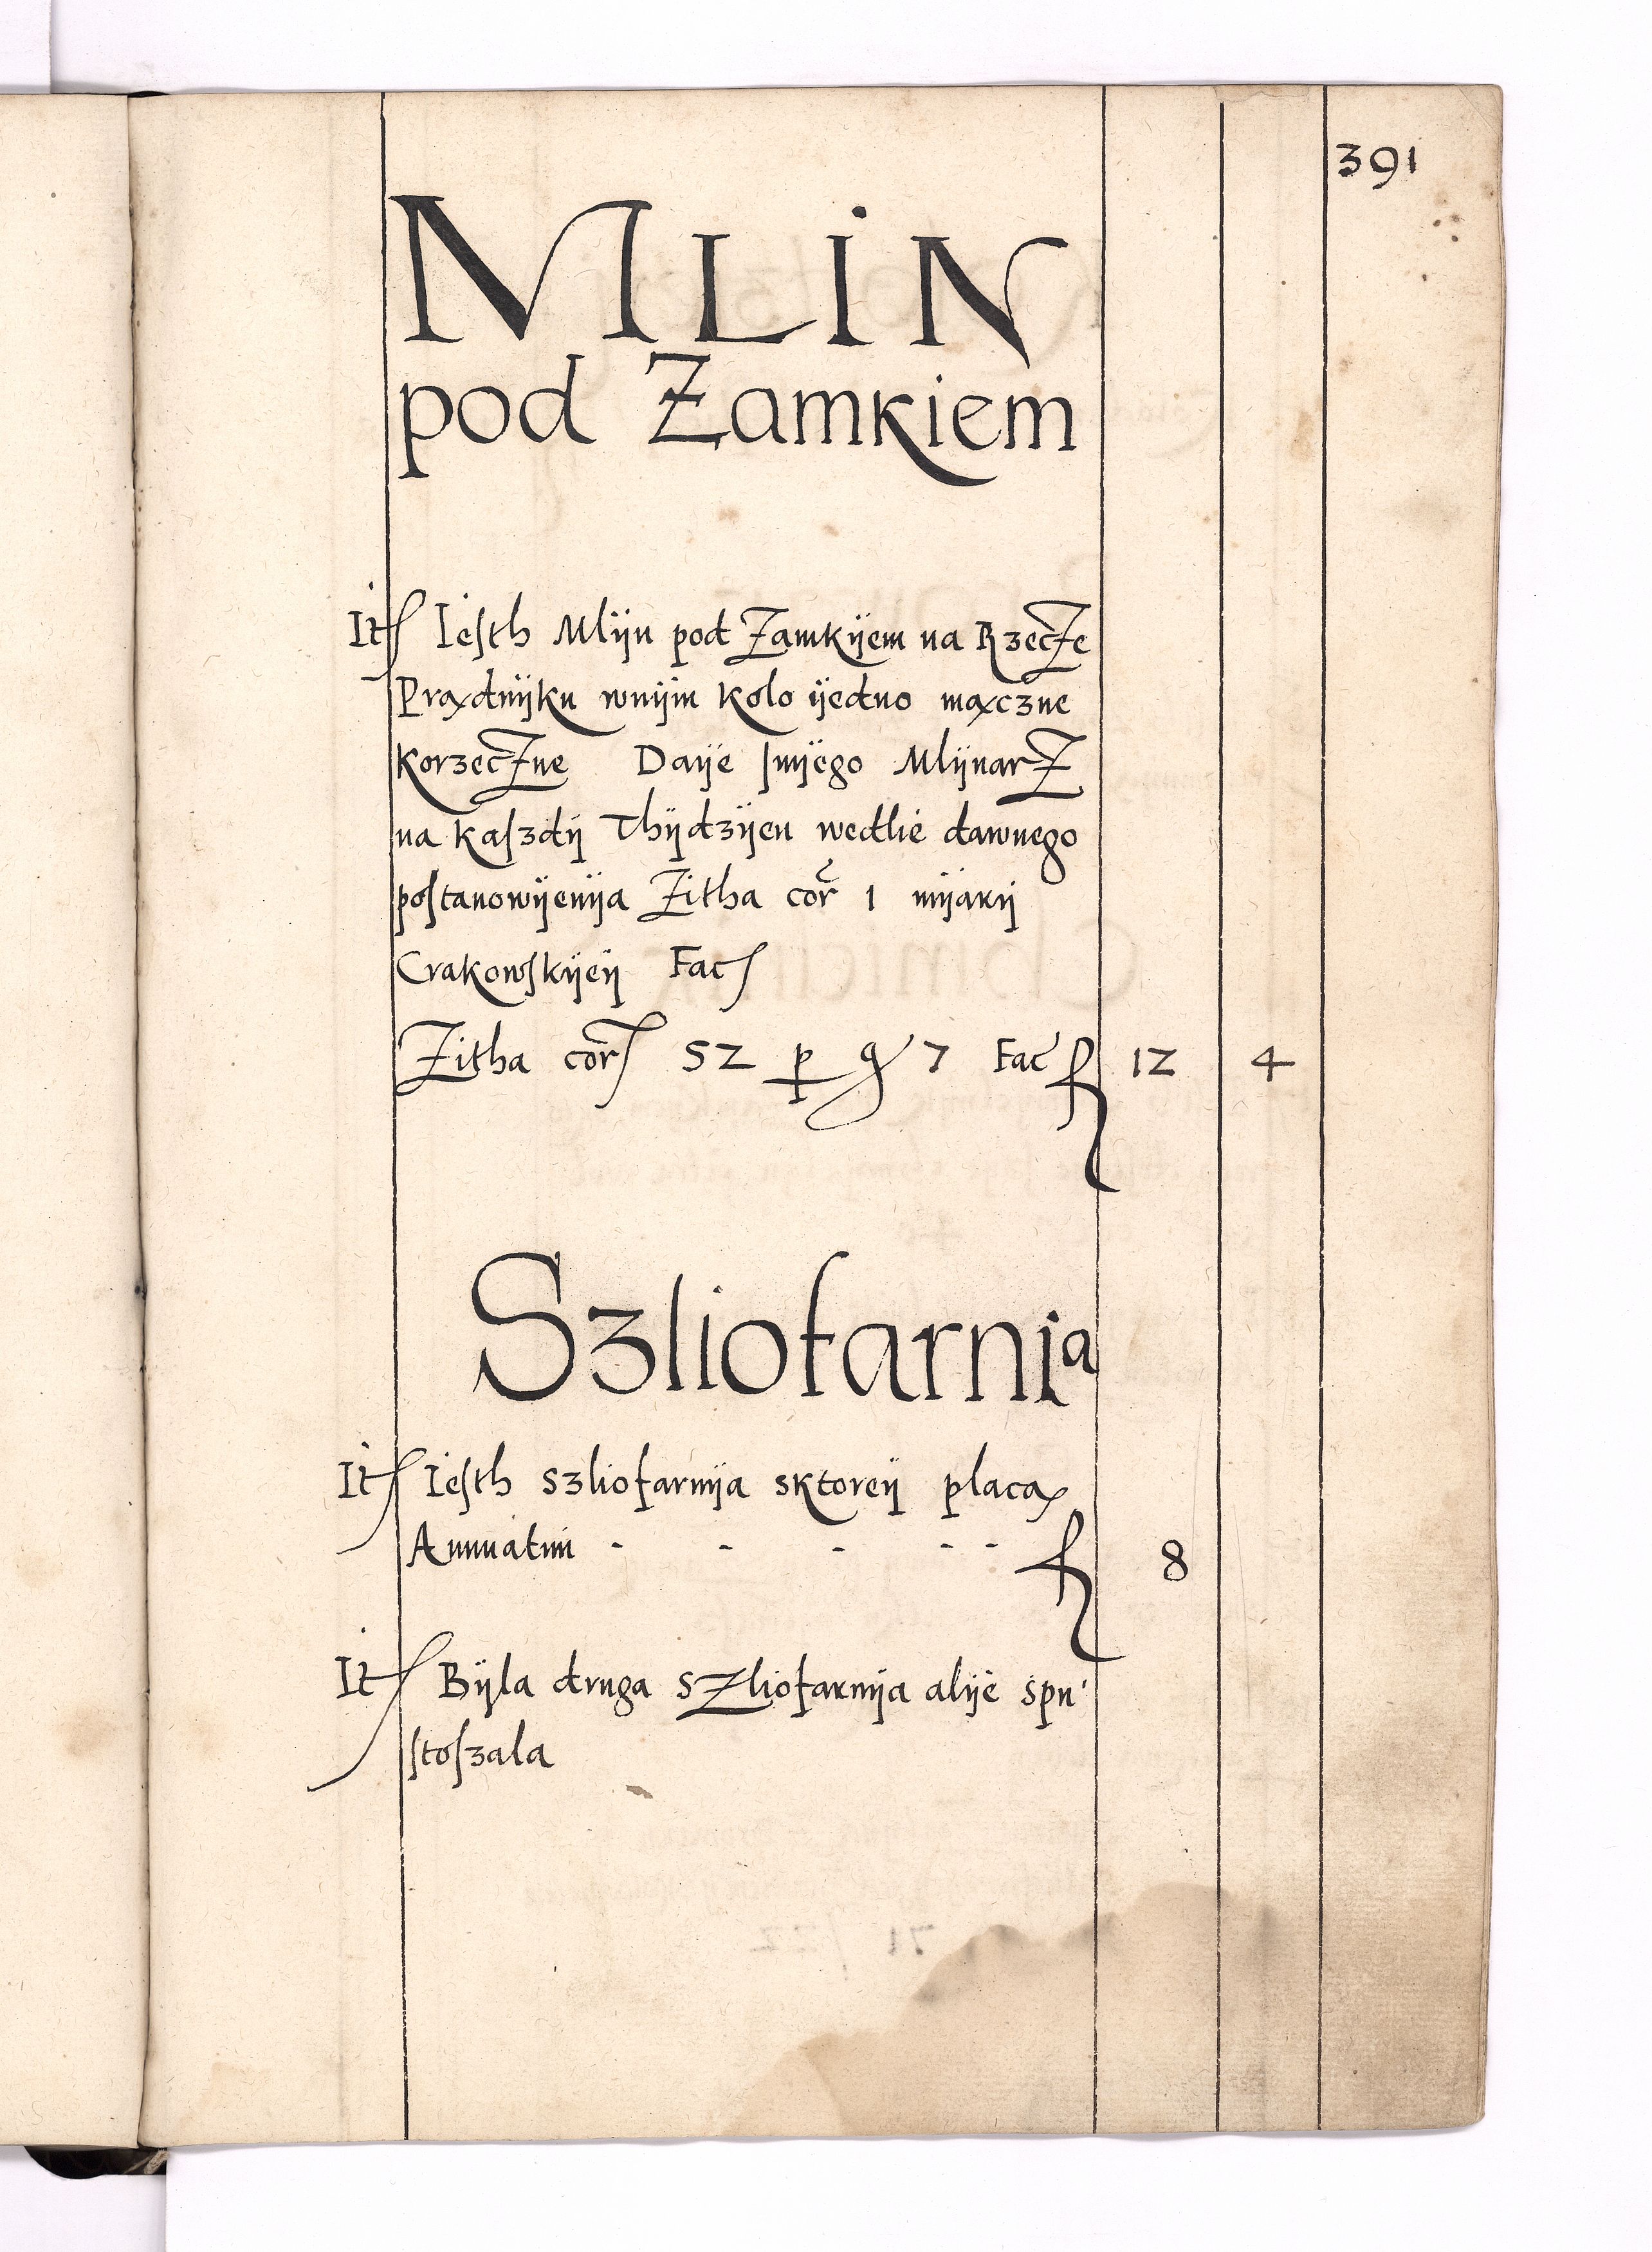 391
MLIN
pod Zamkiem
It Iesth Mlijn pod Zamkijem na Rzecze
Prądnijku wnijm Kolo ijedno mączne
Korzeczne Daije snijego Mlijnarz
na Kaszdij Thijdzijen wedlie dawnego
postanowijenija Zitha cor 1 mijarij
Crakowskijeij Fac
Zitha cor 52 p g 7 Fac f 12 4
Szliofarnia
It Iesth szliofarnija sktoreij placą
Annuatim - - - - - f 8
It Bijla druga szliofarnija alije spu
stoszala